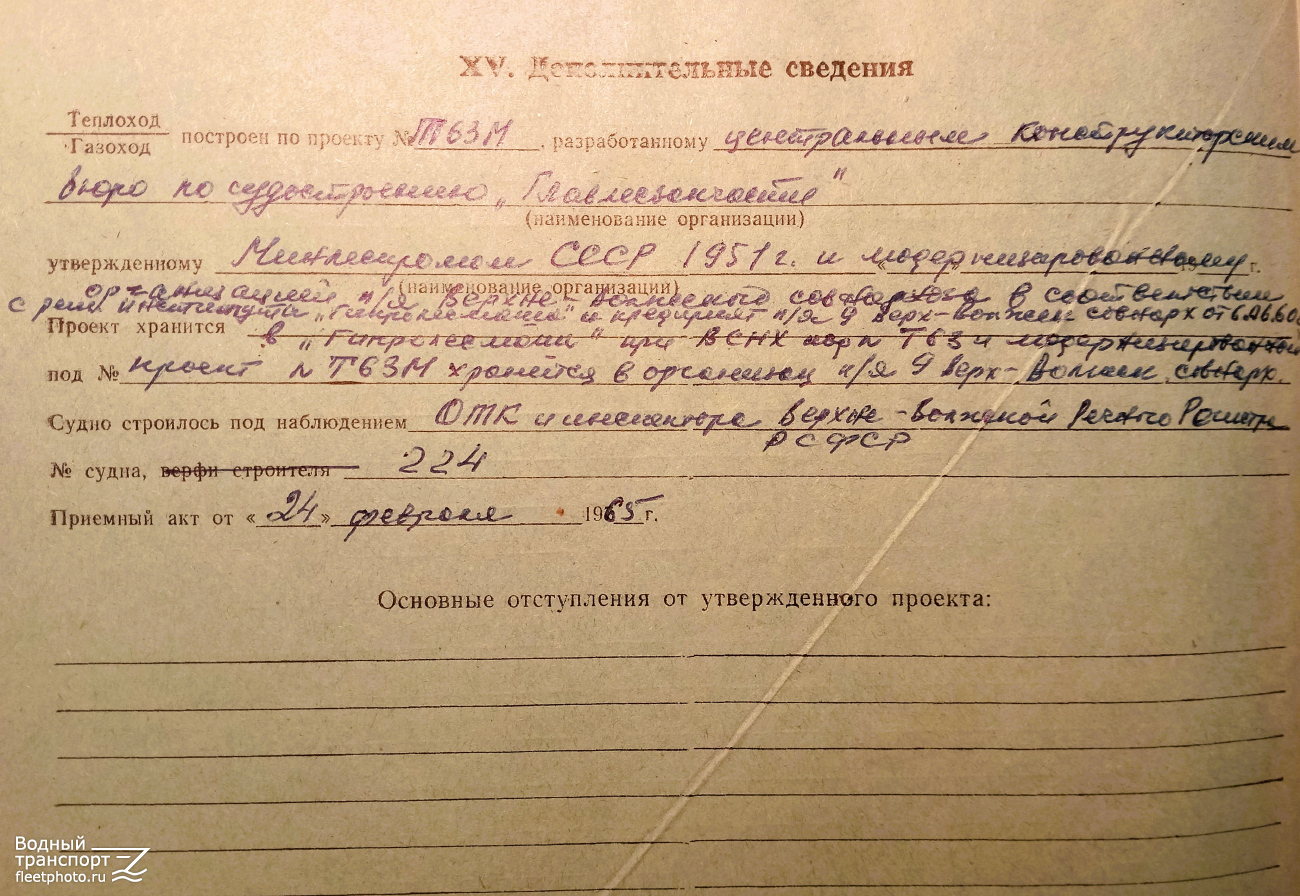 XV. Дополнительные сведения
Теплоход
Газоход
построен по проекту № Т63М, разработанному центральным конструкторским
бюро по судостроению „Главлесзапчасти"
(наименование организации)
утвержденному Минлеспромом СССР 1951 г. и модернизированному г.
(наименование организации)
организацией п/я Верхне-Волжского совнархоза в соответствии
с реш. института „Гипролесмаш" и предприят п/я 9 Верх-Волжск совнарх от 6.
Проект хранится в „Гипролесмаш" при ВСНХ Т63 и модернизированный
под № проект № Т63М хранится в организац п/я 9 Верх-Волжск. совнарх.
Судно строилось под наблюдением ОТК и инспектора Верхне-Волжской Речного Регистра
РСФСР
№ судна, верфи строителя 224
Приемный акт от «24» февраля 1965 г.
Основные отступления от утвержденного проекта:
Водный
транспорт
fleetphoto.ru